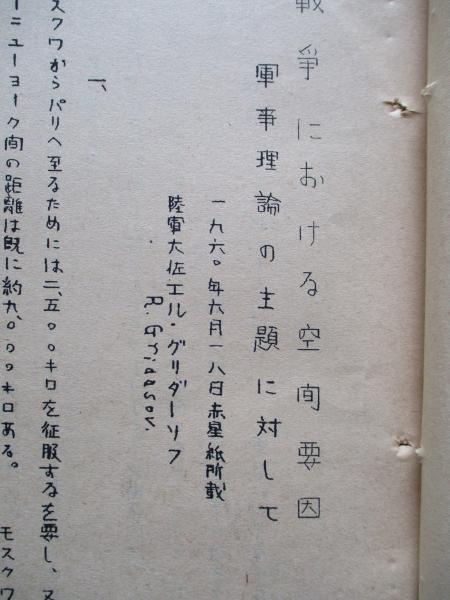 戦争における空间要因
軍事理論の主題に対して
一九六〇年六月一八日赤星紙所載
陸軍大佐エル・グリダーソフ
R. Gridasov.
一、
スクワからパリへ至るためには二、五〇〇キロを征服するを要し、又
ーニューヨーク间の距離は既に約九、〇〇〇キロある。 モスクワ